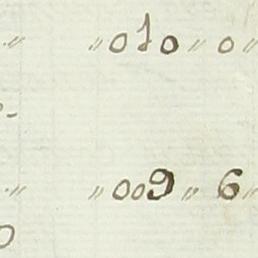 " " 010 " 0 "
-
" " 009 " 6 "
0